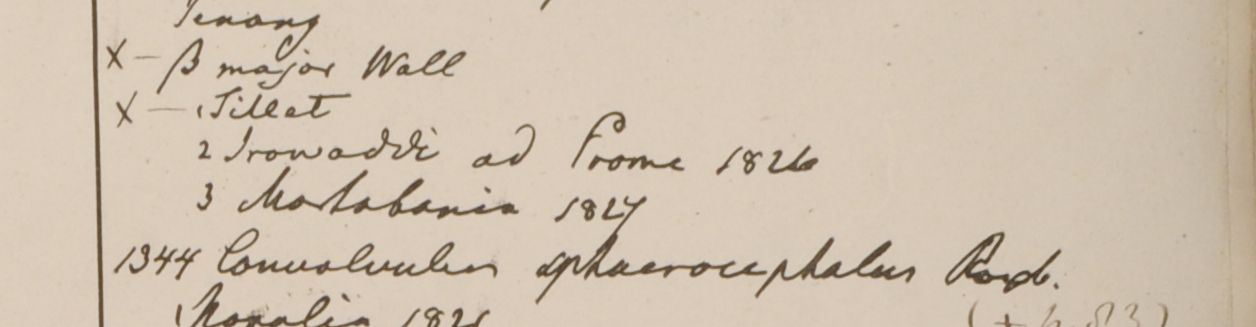 Penang
X — β major Wall
X — 1 Sillet
2 Irowaddi ad Prome 1826
3 Martabania 1827
1344 Convolvulus sphaerocephalus Roxb.
Napalia 1821